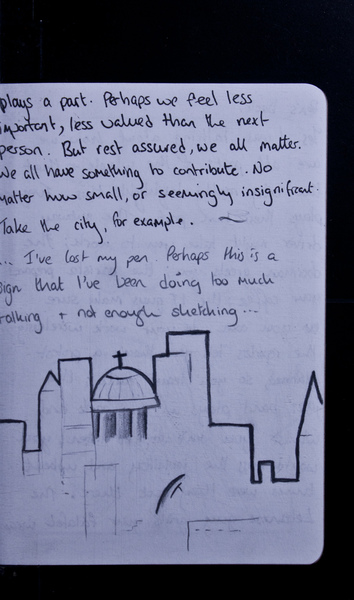 plays a part. Perhaps we feel less
important, less valued than the next
person. But rest assured, we all matter.
We all have something to contribute. No
matter how small, or seemingly insignificant.
Take the city, for example. ~
... I've lost my pen. Perhaps this is a
sign that I've been doing too much
talking + not enough sketching...